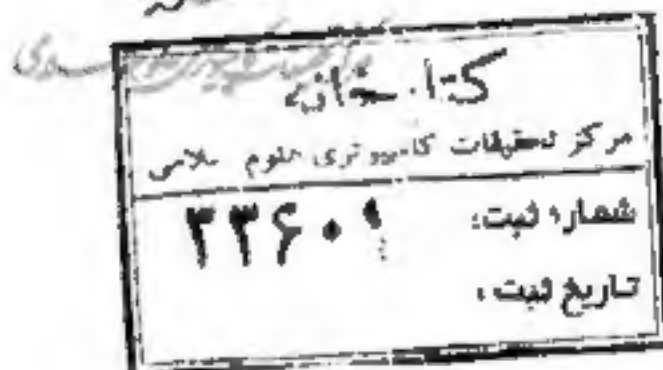 کتابخانه
مرکز تحقیقات کامپیوتری علوم اسلامی
شماره ثبت:
۳۳۶۰۱
تاریخ ثبت: